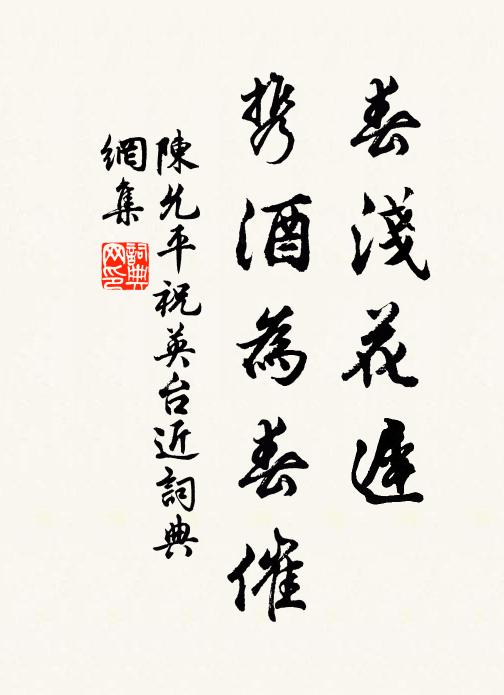 春淺花遲
携酒為春催
陳允平祝英台近詞典
網集
詞典
网印